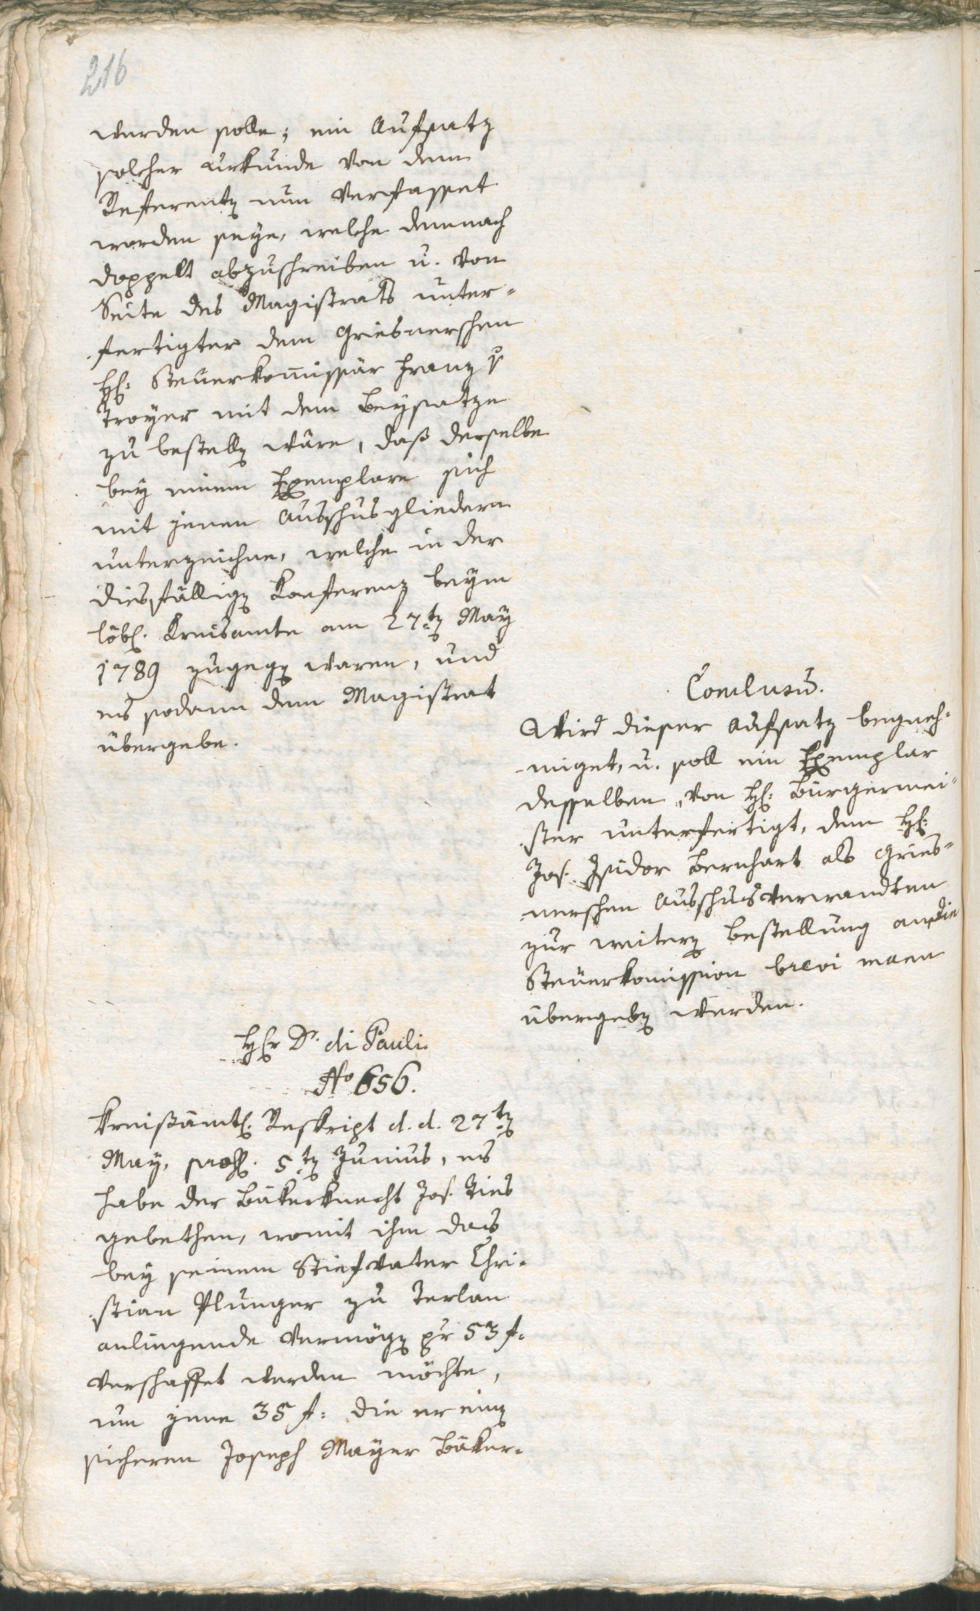 216
werden solle; ein Aufsatz
solcher Urkunde von dem
Referentẽ nun verfasset
worden seye, welche demnach
doppelt abzuschreiben u. von
Seite des Magistrats unter-
fertigter dem Griesnerschen
H: Steuerkom̄issär Franz v
Troyer mit dem Beysatze
zu bestellẽ wäre, daß derselbe
bey einem Exemplare sich
mit jenen Ausschusgliedern
unterzeichne, welche in der
diesfälligẽ Konferenz beym
löbl. Kreisamte am 27tẽ May
1789 zugegẽ waren, und
es sodann dem Magistrat
übergebe.
Conclusũ.
Wird dieser Aufsatz begneh-
miget, u. soll ein Exemplar
desselben, von H: Bürgermei-
ster unterfertigt, dem H:
Jos. Isidor Bernhart als Gries-
nerschen Ausschusverwandten
zur weiterẽ Bestellung an die
Steuerkomission brevi manu
übergebẽ werden.
Hr Dr. di Pauli.
No 656.
Kreisämtl. Reskript d. d. 27tẽ
May, præs. 5tẽ Junius, es
habe der Bäkerknecht Jos. Ties
gebethen, womit ihm das
bey seinem Stiefvater Chri-
stian Plunger zu Terlan
anliegende Vermögẽ pr 53 f.
verschaffet werden möchte,
um jene 35 f: die er einẽ
sicheren Joseph Mayer Bäker-